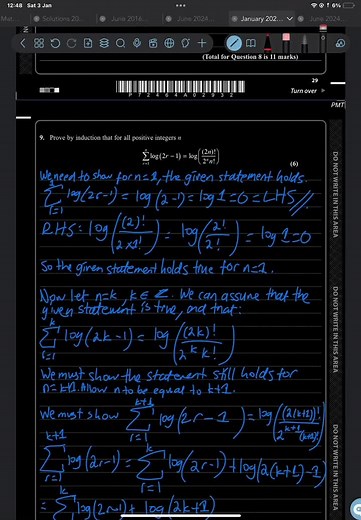 12:48 Sat 3 Jan
6%
Solutions 20...
June 2014...
June 2024...
January 202...
June 2024...
(Total for Question 8 is 11 marks)
29
Turn over
P72464A02932
PMT
DO NOT WRITE IN THIS AREA
DO NOT WRITE IN THIS AREA
DO NOT WRITE IN THIS AREA
9. Prove by induction that for all positive integers n
∑_{r=1}^{n} log(2r – 1) = log((2n)!/(2ⁿn!))
(6)
We need to show for n=1, the given statement holds.
∑_{r=1}^{1} log(2r-1) = log(2-1) = log1=0=LHS //
RHS: log((2)!/(2×1!)) = log(2!/2!) = log1=0
So the given statement holds true for n=1.
Now let n=k, k∈Z. We can assume that the
given statement is true, and that:
∑_{r=1}^{k} log(2k-1) = log((2k)!/(2^k k!))
We must show the statement still holds for
n=k+1. Allow n to be equal to k+1.
We must show ∑_{r=1}^{k+1} log(2r-1) = log((2(k+1))!/(2^{k+1}(k+1)!))
∑_{r=1}^{k+1} log(2r-1) = ∑_{r=1}^{k} log(2r-1) + log(2(k+1)-1)
= ∑^{k} log(2r-1) + log(2k+1)